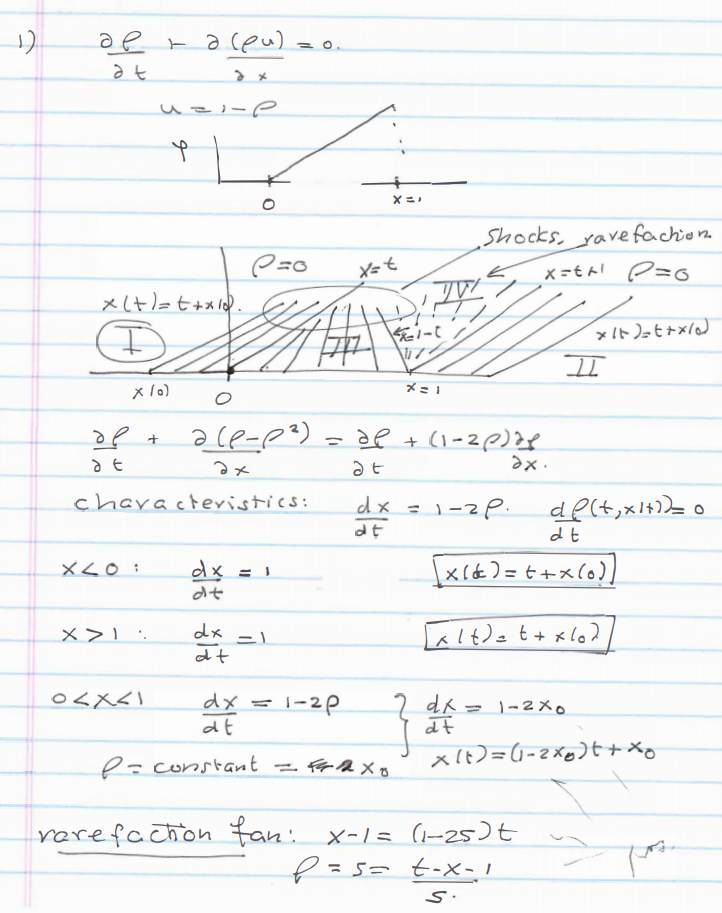 1) ∂ρ/∂t + ∂(ρu)/∂x = 0.
u = 1-ρ
φ
0 x=1
shocks, rarefaction
ρ=0 x=t x=t+1 ρ=0
x(t)=t+x(0). IV
I III x=1-t x(t)=t+x(0)
II
x(0) 0 x=1
∂ρ/∂t + ∂(ρ-ρ²)/∂x = ∂ρ/∂t + (1-2ρ)∂ρ/∂x.
characteristics: dx/dt = 1-2ρ. dρ(t,x(t))/dt = 0
x<0 : dx/dt = 1 x(t)=t+x(0)
x>1 : dx/dt = 1 x(t)=t+x(0)
0<x<1 dx/dt = 1-2ρ } dx/dt = 1-2x₀
ρ = constant = x₀ x(t)=(1-2x₀)t+x₀
rarefaction fan: x-1 = (1-2s)t
ρ = s = t-x-1/s.